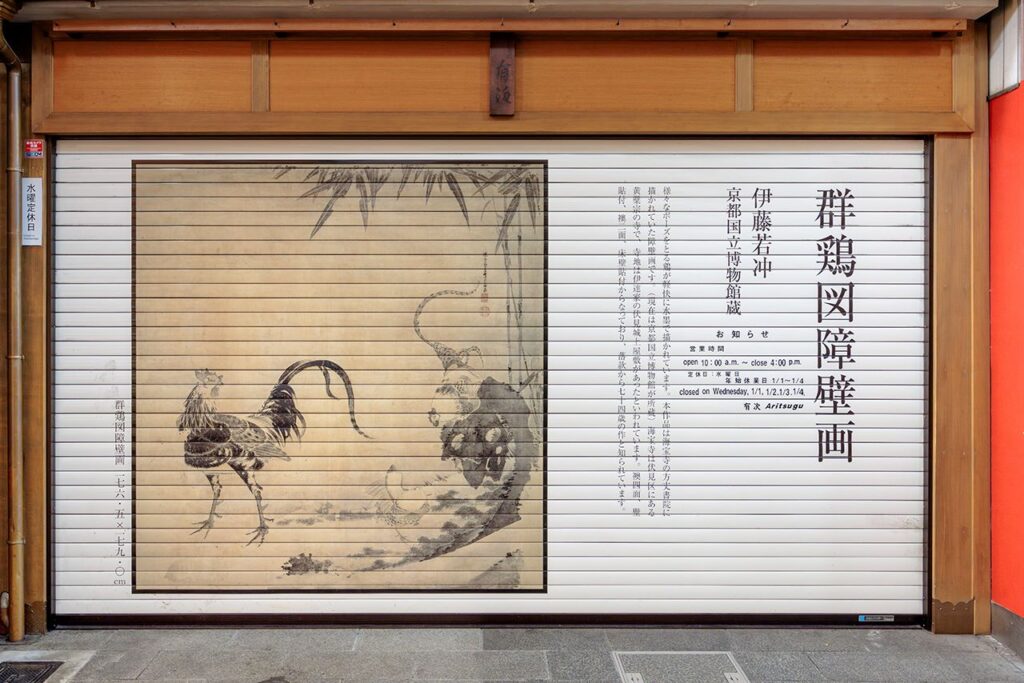 有次
水曜定休日
群鶏図障壁画
伊藤若冲
京都国立博物館蔵
お知らせ
営業時間
open 10:00 a.m. ~ close 4:00 p.m.
定休日:水曜日
年始休業日 1/1~1/4
closed on Wednesday, 1/1, 1/2.1/3.1/4.
有次 Aritsugu
様々なポーズをとる鶏が軽快に水墨で描かれています。本作品は海宝寺の方丈書院に
描かれていた障壁画です。(現在は京都国立博物館が所蔵)海宝寺は伏見区にある
黄檗宗の寺で、寺地は伊達家の伏見城上屋敷があったといわれています。襖四面、壁
貼付、襖二面、床壁貼付からなっており、落款から七十四歳の作と知られています。
群鶏図障壁画 一七六・五×一七九・〇cm